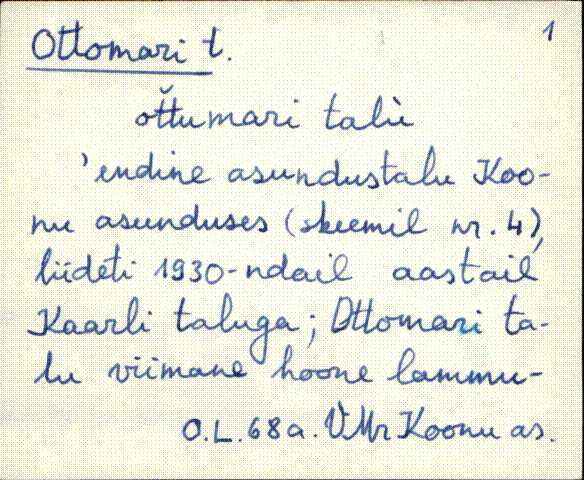 1
Ottomari t.
oťtumari talù
'endine asundustalu Koo-
nu asunduses (skeemil nr. 4),
liideti 1930-ndail aastail
Kaarli taluga; Ottomari ta-
lu viimane hoone lammu-
O.L. 68 a. VMr Koonu as.